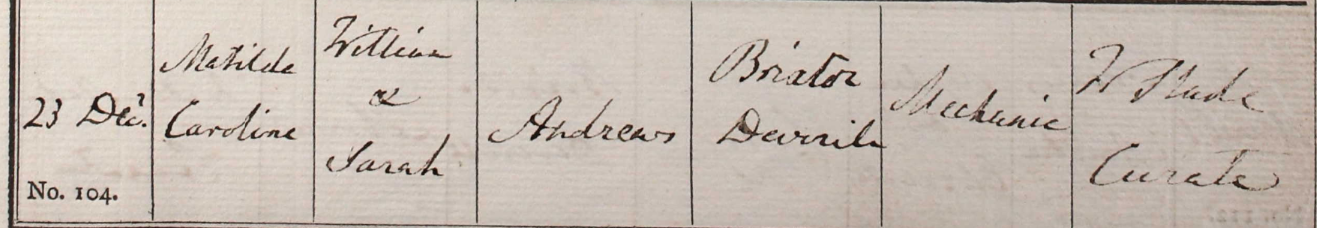 23 Decr.
No. 104.
Matilda
Caroline
William
&
Sarah
Andrews
Brixton
Deverill
Mechanic
W Slade
Curate